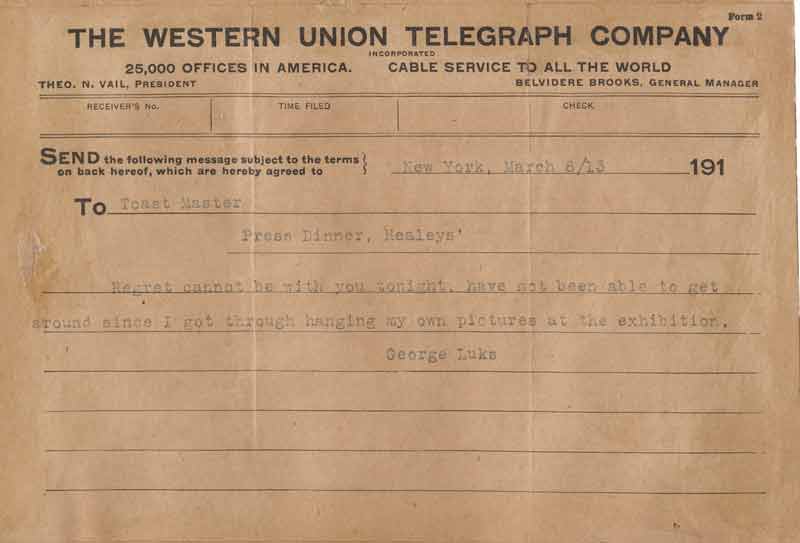 Form 2
THE WESTERN UNION TELEGRAPH COMPANY
INCORPORATED
25,000 OFFICES IN AMERICA. CABLE SERVICE TO ALL THE WORLD
THEO. N. VAIL, PRESIDENT BELVIDERE BROOKS, GENERAL MANAGER
RECEIVER'S No. TIME FILED CHECK
SEND the following message subject to the terms
on back hereof, which are hereby agreed to
New York, March 8/13 191
To Toast Master
Press Dinner, Healeys'
Regret cannot be with you tonight, have not been able to get
around since I got through hanging my own pictures at the exhibition.
George Luks